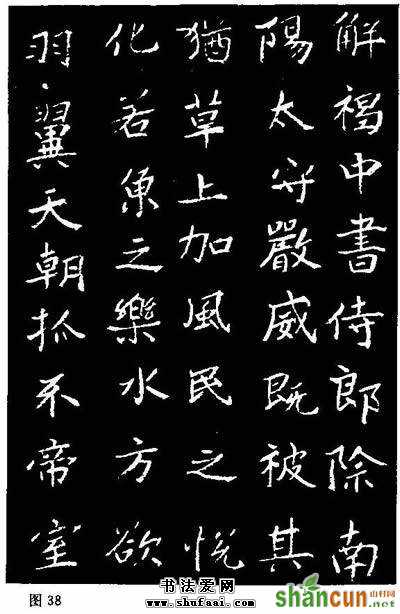 解褐中書侍郎除南
陽太守嚴威既被其
猶草上加風民之悅
化若魚之樂水方欲
羽翼天朝抓牙帝室
图 38
书法爱网
www.shufaai.com
shancun
山村网
.net